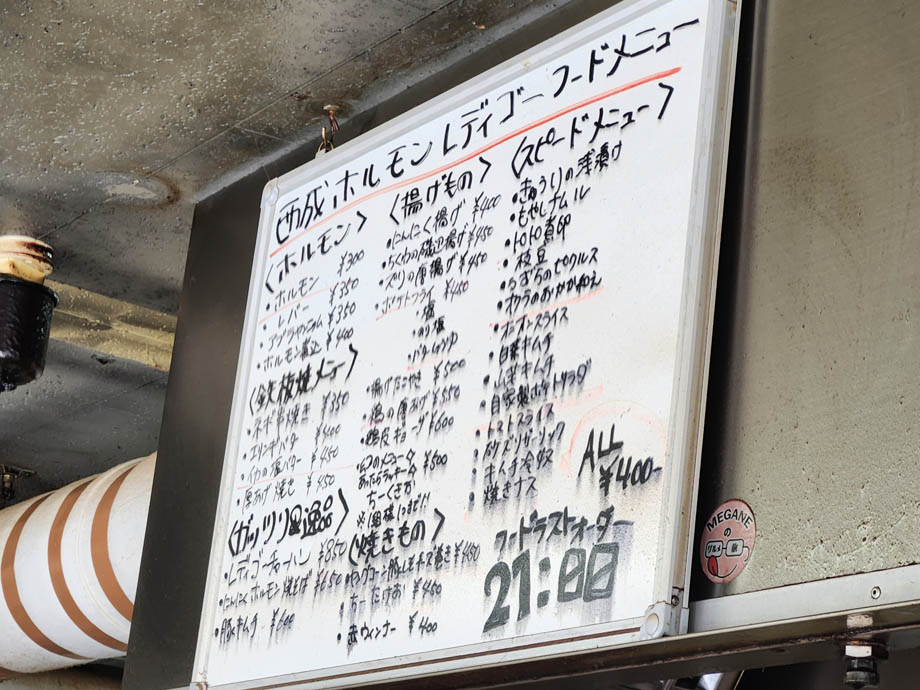 西成ホルモン レディゴー フードメニュー
〈ホルモン〉
・ホルモン ¥300
・レバー ¥350
・アグラヤゲンナム ¥350
・ホルモン煮込 ¥400
〈鉄板焼メニュー〉
・ネギ串焼き ¥350
・エリンギバター ¥400
・イカの塩バター ¥450
・厚あげ焼き ¥450
〈ガッツリ逸品〉
・レディゴーチャーハン ¥850
・にんにくホルモン焼そば ¥650
・豚キムチ ¥600
〈揚げもの〉
・にんにく揚げ ¥400
・ちくわの磯辺揚げ ¥450
・ズリの唐揚げ ¥450
・ポテトフライ ¥450
・塩
・のり塩
・バターしょうゆ
・揚げたこやき ¥500
・鶏の唐あげ ¥550
・鶏皮ギョーザ ¥600
☆幻のメニュー☆
あったらラッキー☆ ¥500
ちーくさお
※1組様1つまで!!
〈焼きもの〉
豚しそチーズ巻き ¥450
・ちーたけお ¥450
・赤ウィンナー ¥400
〈スピードメニュー〉
・きゅうりの浅漬け
・もやしナムル
・トロトロ煮卵
・枝豆
・うずらのピクルス
・オクラのおかかわえ
・オニオンスライス
・白菜キムチ
・ネギキムチ
・自家製ポテトサラダ
・トマトスライス
・キムチ冷奴
・焼きナス
ALL
¥400-
フードラストオーダー
21:00
MEGANE
の
グルメ 旅